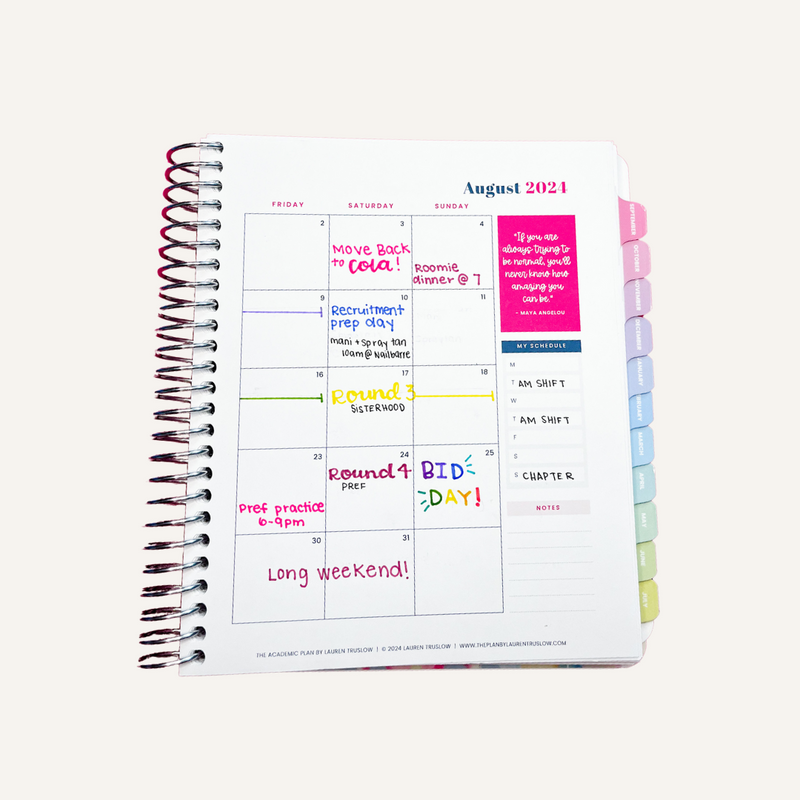 August 2024
FRIDAY SATURDAY SUNDAY
2 3 4
Move Back
to Cola!
Roomie
dinner @ 7
9 10 11
Recruitment
prep day
mani + spray tan
10am @ Nailbarre
16 17 18
Round 3
SISTERHOOD
23 24 25
Pref practice
6-9pm
Round 4
PREF
BID
DAY!
30 31
Long weekend!
"If you are
always trying to
be normal, you'll
never know how
amazing you
can be."
- MAYA ANGELOU
MY SCHEDULE
M
T AM SHIFT
W
T AM SHIFT
F
S
S CHAPTER
NOTES
SEPTEMBER
OCTOBER
NOVEMBER
DECEMBER
JANUARY
FEBRUARY
MARCH
APRIL
MAY
JUNE
JULY
THE ACADEMIC PLAN BY LAUREN TRUSLOW | © 2024 LAUREN TRUSLOW | WWW.THEPLANBYLAURENTRUSLOW.COM